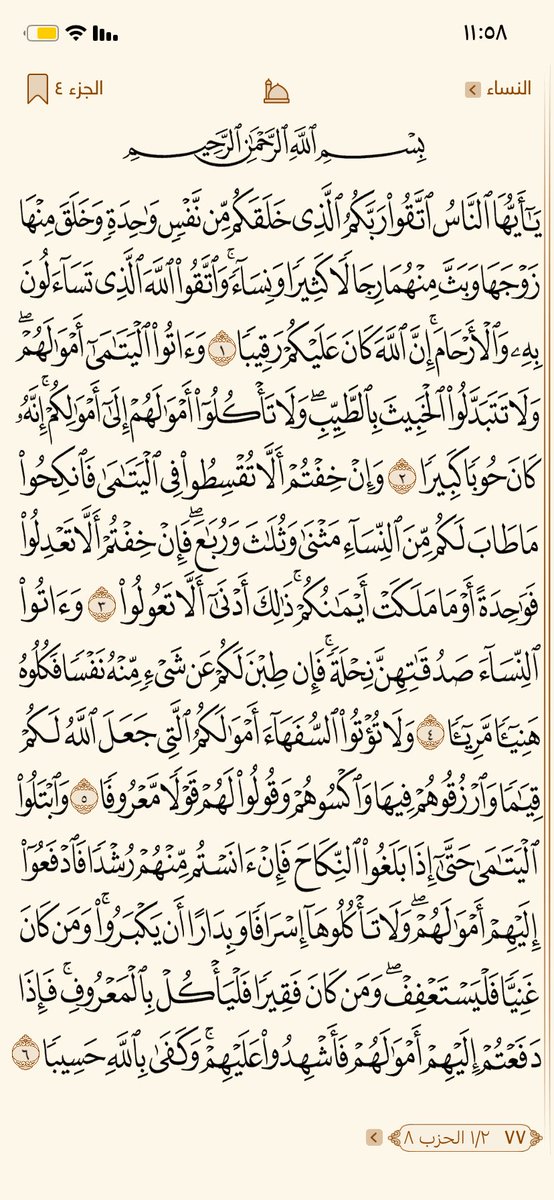 ١١:٥٨
النساء
الجزء ٤
بِسْمِ ٱللَّهِ ٱلرَّحْمَٰنِ ٱلرَّحِيمِ
يَٰٓأَيُّهَا ٱلنَّاسُ ٱتَّقُوا۟ رَبَّكُمُ ٱلَّذِى خَلَقَكُم مِّن نَّفْسٍ وَٰحِدَةٍ وَخَلَقَ مِنْهَا
زَوْجَهَا وَبَثَّ مِنْهُمَا رِجَالًا كَثِيرًا وَنِسَآءً ۚ وَٱتَّقُوا۟ ٱللَّهَ ٱلَّذِى تَسَآءَلُونَ
بِهِۦ وَٱلْأَرْحَامَ ۚ إِنَّ ٱللَّهَ كَانَ عَلَيْكُمْ رَقِيبًا ١ وَءَاتُوا۟ ٱلْيَتَٰمَىٰٓ أَمْوَٰلَهُمْ ۖ
وَلَا تَتَبَدَّلُوا۟ ٱلْخَبِيثَ بِٱلطَّيِّبِ ۖ وَلَا تَأْكُلُوٓا۟ أَمْوَٰلَهُمْ إِلَىٰٓ أَمْوَٰلِكُمْ ۚ إِنَّهُۥ
كَانَ حُوبًا كَبِيرًا ٢ وَإِنْ خِفْتُمْ أَلَّا تُقْسِطُوا۟ فِى ٱلْيَتَٰمَىٰ فَٱنكِحُوا۟
مَا طَابَ لَكُم مِّنَ ٱلنِّسَآءِ مَثْنَىٰ وَثُلَٰثَ وَرُبَٰعَ ۖ فَإِنْ خِفْتُمْ أَلَّا تَعْدِلُوا۟
فَوَٰحِدَةً أَوْ مَا مَلَكَتْ أَيْمَٰنُكُمْ ۚ ذَٰلِكَ أَدْنَىٰٓ أَلَّا تَعُولُوا۟ ٣ وَءَاتُوا۟
ٱلنِّسَآءَ صَدُقَٰتِهِنَّ نِحْلَةً ۚ فَإِن طِبْنَ لَكُمْ عَن شَىْءٍ مِّنْهُ نَفْسًا فَكُلُوهُ
هَنِيٓـًٔا مَّرِيٓـًٔا ٤ وَلَا تُؤْتُوا۟ ٱلسُّفَهَآءَ أَمْوَٰلَكُمُ ٱلَّتِى جَعَلَ ٱللَّهُ لَكُمْ
قِيَٰمًا وَٱرْزُقُوهُمْ فِيهَا وَٱكْسُوهُمْ وَقُولُوا۟ لَهُمْ قَوْلًا مَّعْرُوفًا ٥ وَٱبْتَلُوا۟
ٱلْيَتَٰمَىٰ حَتَّىٰٓ إِذَا بَلَغُوا۟ ٱلنِّكَاحَ فَإِنْ ءَانَسْتُم مِّنْهُمْ رُشْدًا فَٱدْفَعُوٓا۟
إِلَيْهِمْ أَمْوَٰلَهُمْ ۖ وَلَا تَأْكُلُوهَآ إِسْرَافًا وَبِدَارًا أَن يَكْبَرُوا۟ ۚ وَمَن كَانَ
غَنِيًّا فَلْيَسْتَعْفِفْ ۖ وَمَن كَانَ فَقِيرًا فَلْيَأْكُلْ بِٱلْمَعْرُوفِ ۚ فَإِذَا
دَفَعْتُمْ إِلَيْهِمْ أَمْوَٰلَهُمْ فَأَشْهِدُوا۟ عَلَيْهِمْ ۚ وَكَفَىٰ بِٱللَّهِ حَسِيبًا ٦
٧٧ ١/٢ الحزب ٨